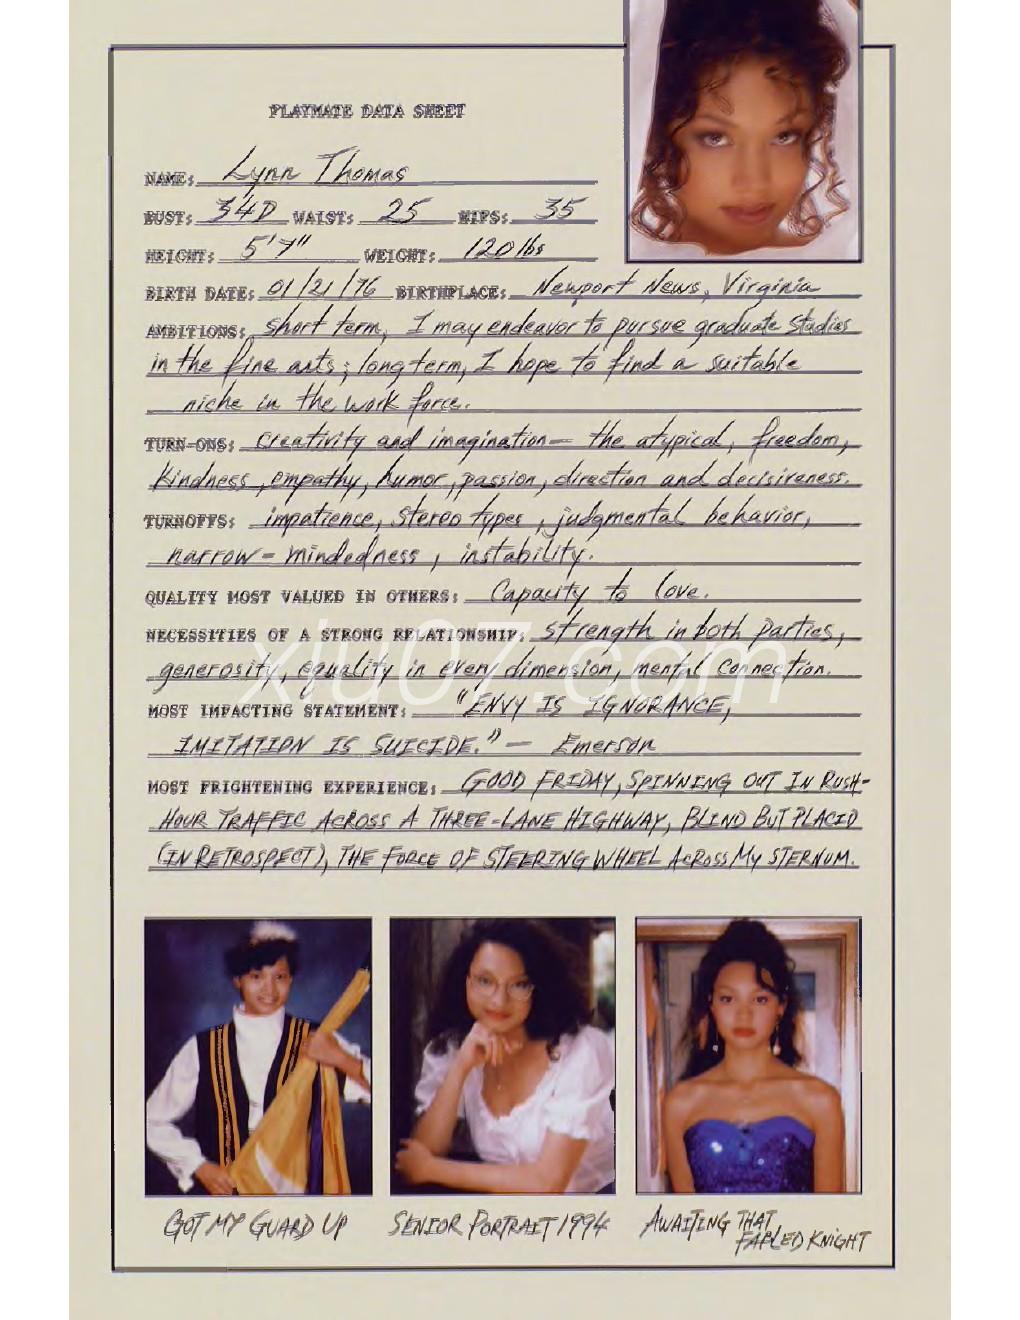 PLAYMATE DATA SHEET
NAME: Lynn Thomas
BUST: 34D WAIST: 25 HIPS: 35
HEIGHT: 5'7" WEIGHT: 120 lbs
BIRTH DATE: 01/21/76 BIRTHPLACE: Newport News, Virginia
AMBITIONS: Short term, I may endeavor to pursue graduate studies
in the fine arts; long term, I hope to find a suitable
niche in the work force.
TURN-ONS: Creativity and imagination— the atypical, freedom,
Kindness, empathy, humor, passion, direction and decisiveness.
TURNOFFS: impatience, stereotypes, judgmental behavior,
narrow-mindedness, instability.
QUALITY MOST VALUED IN OTHERS: Capacity to love.
NECESSITIES OF A STRONG RELATIONSHIP: strength in both parties,
generosity, equality in every dimension, mental connection.
xiu07.com
MOST IMPACTING STATEMENT: "ENVY IS IGNORANCE,
IMITATION IS SUICIDE." — Emerson
MOST FRIGHTENING EXPERIENCE: GOOD FRIDAY, SPINNING OUT IN RUSH-
HOUR TRAFFIC ACROSS A THREE-LANE HIGHWAY, BLIND BUT PLACID
(IN RETROSPECT), THE FORCE OF STEERING WHEEL ACROSS MY STERNUM.
GOT MY GUARD UP
SENIOR PORTRAIT 1994
AWAITING THAT
FABLED KNIGHT